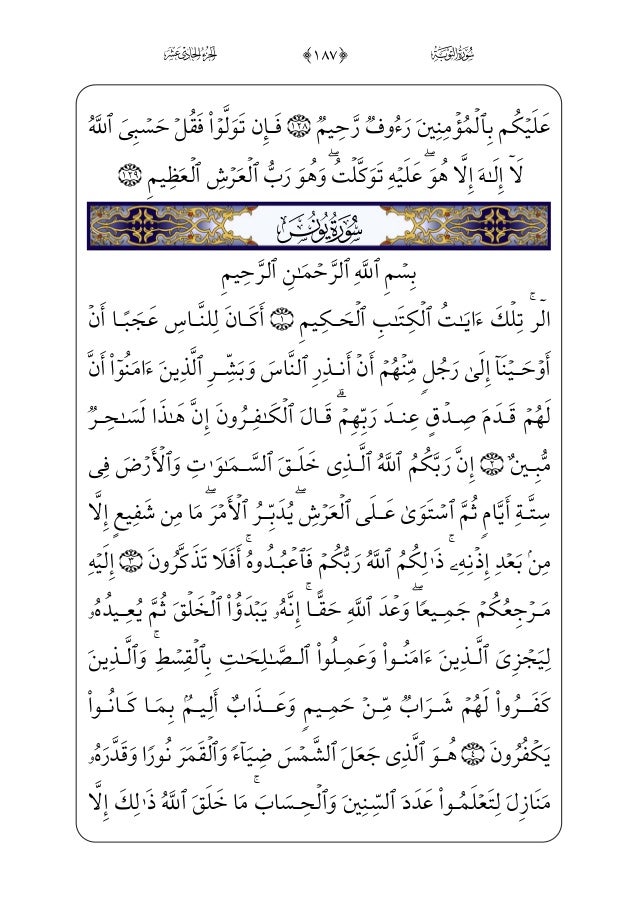 سُورَةُ التَّوْبَةِ ﴿١٨٧﴾ الجُزْءُ الحَادِي عَشَرَ
عَلَيۡكُم بِٱلۡمُؤۡمِنِينَ رَءُوفٞ رَّحِيمٞ ١٢٨ فَإِن تَوَلَّوۡاْ فَقُلۡ حَسۡبِيَ ٱللَّهُ
لَآ إِلَٰهَ إِلَّا هُوَۖ عَلَيۡهِ تَوَكَّلۡتُۖ وَهُوَ رَبُّ ٱلۡعَرۡشِ ٱلۡعَظِيمِ ١٢٩
سُورَةُ يُونُسَ
بِسۡمِ ٱللَّهِ ٱلرَّحۡمَٰنِ ٱلرَّحِيمِ
الٓرۚ تِلۡكَ ءَايَٰتُ ٱلۡكِتَٰبِ ٱلۡحَكِيمِ ١ أَكَانَ لِلنَّاسِ عَجَبًا أَنۡ
أَوۡحَيۡنَآ إِلَىٰ رَجُلٖ مِّنۡهُمۡ أَنۡ أَنذِرِ ٱلنَّاسَ وَبَشِّرِ ٱلَّذِينَ ءَامَنُوٓاْ أَنَّ
لَهُمۡ قَدَمَ صِدۡقٍ عِندَ رَبِّهِمۡۗ قَالَ ٱلۡكَٰفِرُونَ إِنَّ هَٰذَا لَسَٰحِرٞ
مُّبِينٌ ٢ إِنَّ رَبَّكُمُ ٱللَّهُ ٱلَّذِي خَلَقَ ٱلسَّمَٰوَٰتِ وَٱلۡأَرۡضَ فِي
سِتَّةِ أَيَّامٖ ثُمَّ ٱسۡتَوَىٰ عَلَى ٱلۡعَرۡشِۖ يُدَبِّرُ ٱلۡأَمۡرَۖ مَا مِن شَفِيعٍ إِلَّا
مِنۢ بَعۡدِ إِذۡنِهِۦۚ ذَٰلِكُمُ ٱللَّهُ رَبُّكُمۡ فَٱعۡبُدُوهُۚ أَفَلَا تَذَكَّرُونَ ٣ إِلَيۡهِ
مَرۡجِعُكُمۡ جَمِيعٗاۖ وَعۡدَ ٱللَّهِ حَقًّاۚ إِنَّهُۥ يَبۡدَؤُاْ ٱلۡخَلۡقَ ثُمَّ يُعِيدُهُۥ
لِيَجۡزِيَ ٱلَّذِينَ ءَامَنُواْ وَعَمِلُواْ ٱلصَّٰلِحَٰتِ بِٱلۡقِسۡطِۚ وَٱلَّذِينَ
كَفَرُواْ لَهُمۡ شَرَابٞ مِّنۡ حَمِيمٖ وَعَذَابٌ أَلِيمُۢ بِمَا كَانُواْ
يَكۡفُرُونَ ٤ هُوَ ٱلَّذِي جَعَلَ ٱلشَّمۡسَ ضِيَآءٗ وَٱلۡقَمَرَ نُورٗا وَقَدَّرَهُۥ
مَنَازِلَ لِتَعۡلَمُواْ عَدَدَ ٱلسِّنِينَ وَٱلۡحِسَابَۚ مَا خَلَقَ ٱللَّهُ ذَٰلِكَ إِلَّا